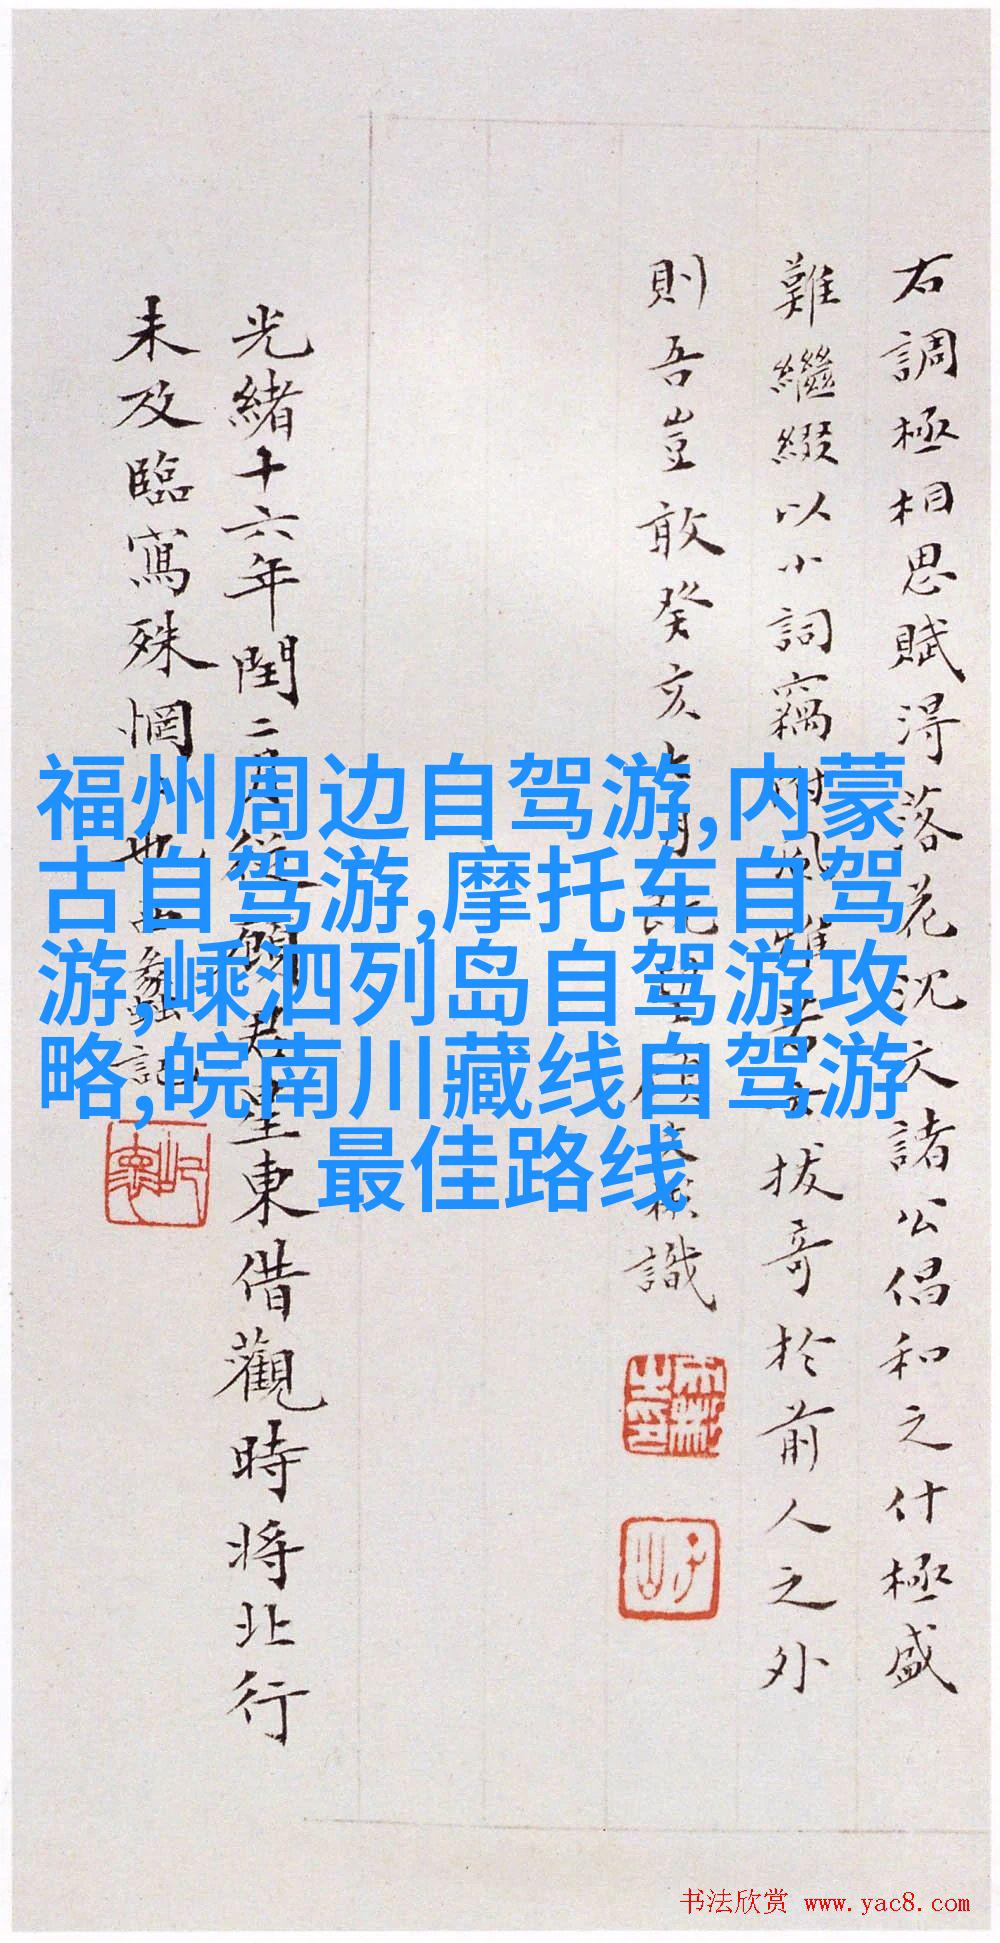 右調極相思賦得落花沈文諸公倡和之什極盛
難繼綴以小詞竊附風雅若云拔奇於前人之外
則吾豈敢癸亥
識
光緒十六年閏二月從顧君星東借觀時將北行
未及臨寫殊惘
也
記
福州周边自驾游,内蒙
古自驾游,摩托车自驾
游,嵊泗列岛自驾游攻
略,皖南川藏线自驾游
最佳路线
书法欣赏 www.yac8.com